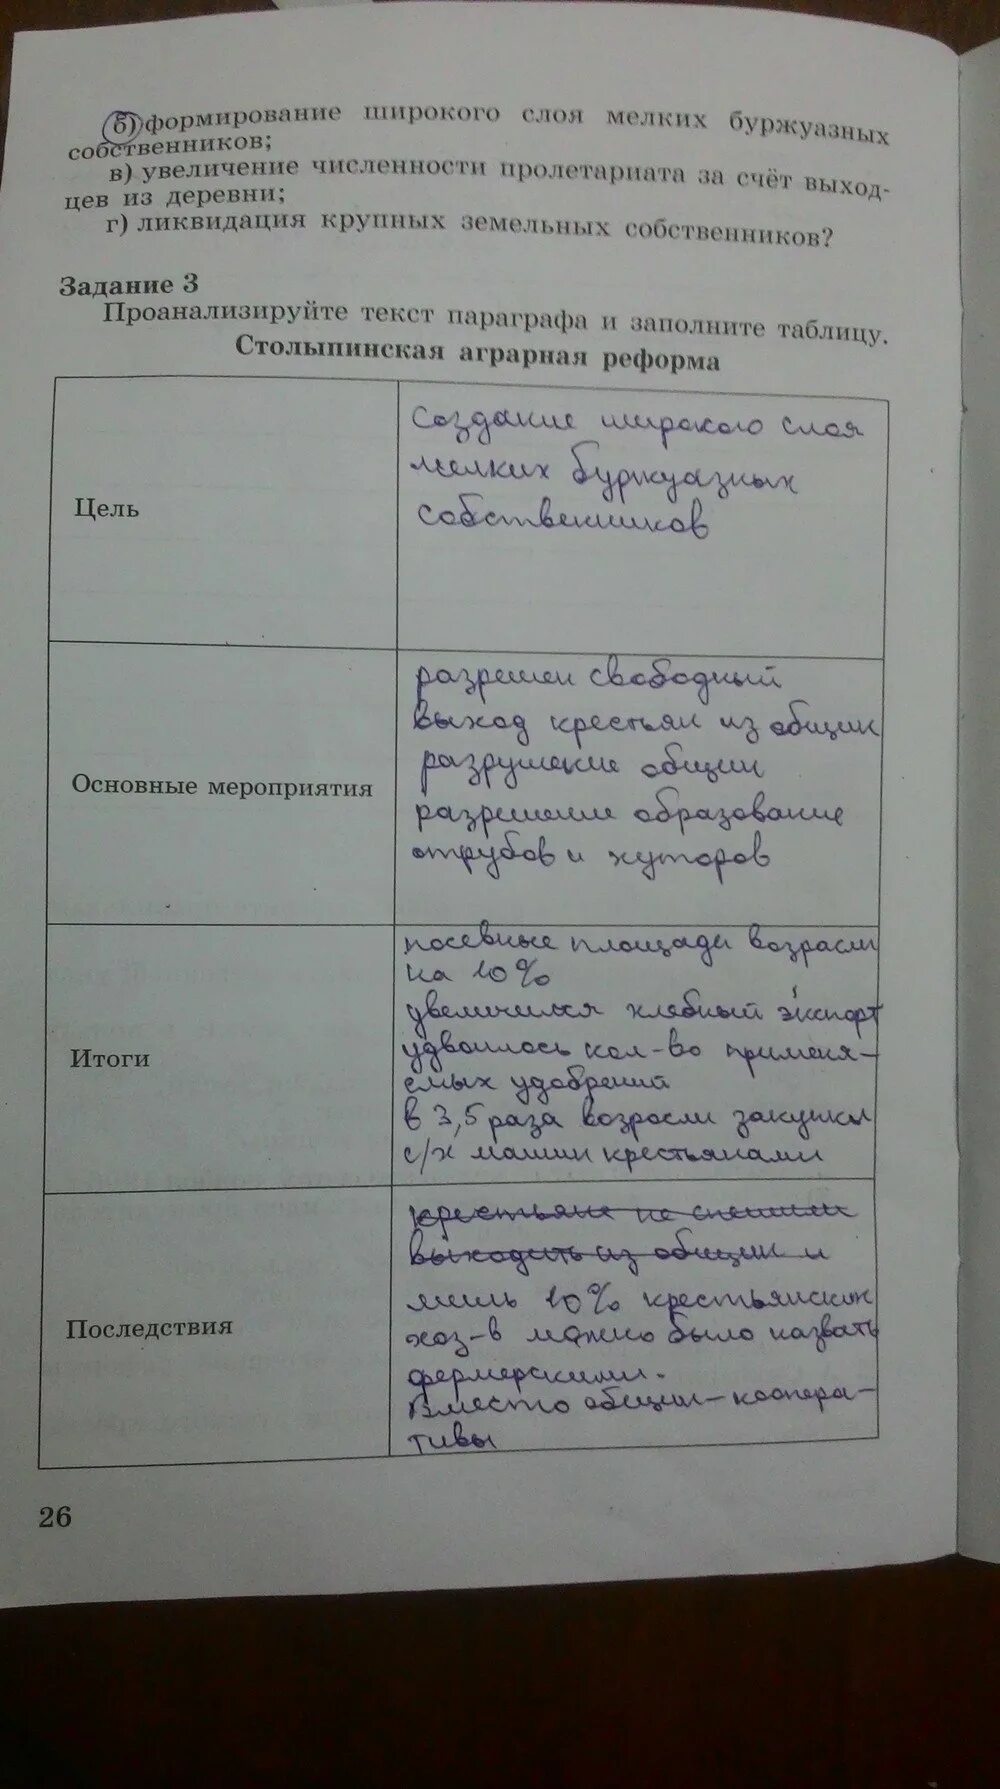 б) формирование широкого слоя мелких буржуазных
собственников;
в) увеличение численности пролетариата за счёт выход-
цев из деревни;
г) ликвидация крупных земельных собственников?
Задание 3
Проанализируйте текст параграфа и заполните таблицу.
Столыпинская аграрная реформа
Цель
создание широкого слоя
мелких буржуазных
собственников
Основные мероприятия
разрешен свободный
выход крестьян из общин
разрушение общин
разрешение образование
отрубов и хуторов
Итоги
посевные площади возрасли
на 10%
увеличился хлебный экспорт
удвоилось кол-во применя-
емых удобрений
в 3,5 раза возросли закупки
с/х машин крестьянами
Последствия
крестьяне не спешили
выходить из общин и
лишь 10% крестьянских
хоз-в можно было назвать
фермерскими.
Вместо общин-коопера-
тивы
26